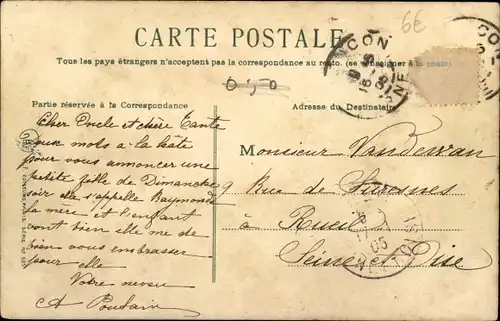 6E
CARTE POSTALE
Tous les pays étrangers n'acceptent pas la correspondance au recto. (se renseigner à la poste)
0,50
Partie réservée à la Correspondance
Adresse du Destinataire
Cher Oncle et chère Tante
deux mots a la hâte
pour vous annoncer une
petite fille de Dimanche
soir elle s'appelle Raymonde
la mere et l'enfant
vont bien elle me de
bien vous embrasser
pour elle
Votre neveu
A Poulain
Monsieur
9 Rue de Suresnes
à Rueil
Seine et Oise